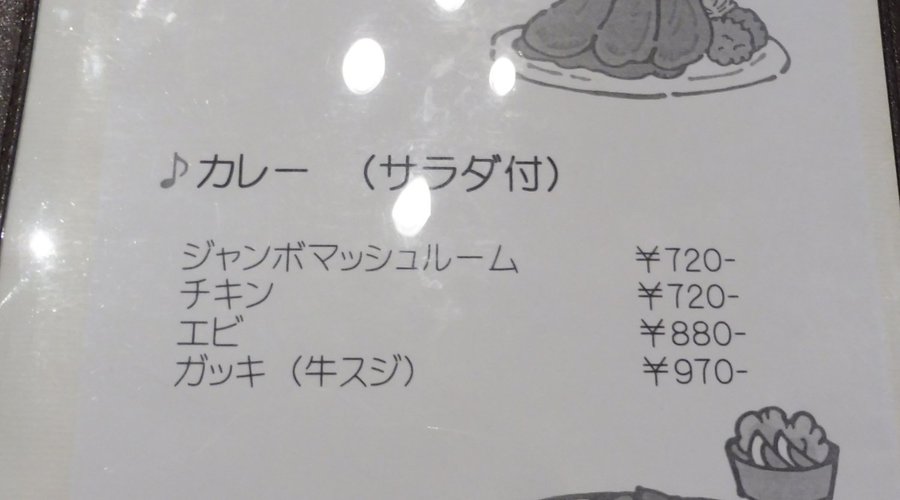 ♪カレー （サラダ付）
ジャンボマッシュルーム ¥720-
チキン ¥720-
エビ ¥880-
ガッキ（牛スジ） ¥970-